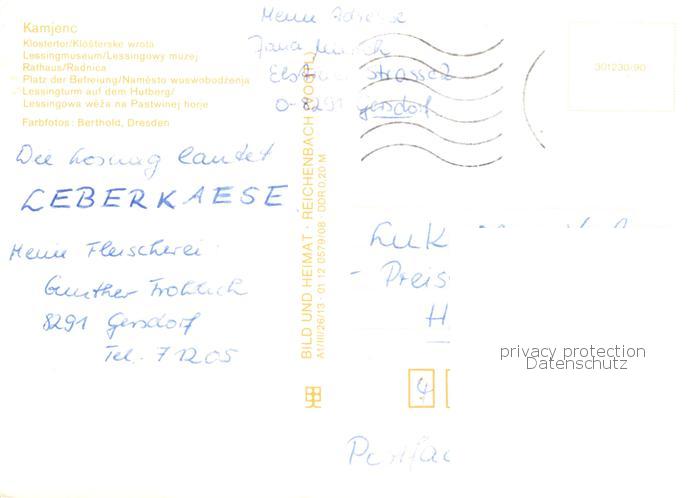 Kamjenc
Klostertor/Klóšterske wrota
Lessingmuseum/Lessingowy muzej
Rathaus/Radnica
Platz der Befreiung/Naměsto wuswobodźenja
Lessingturm auf dem Hutberg/
Lessingowa wěža na Pastwinej horje
Farbfotos: Berthold, Dresden
Meine Adresse
Jana
strasse 2
O-8291 Gersdorf
301230/90
Die Lösung lautet
LEBERKAESE
Meine Fleischerei:
Gunther Frohlich
8291 Gersdorf
Tel. 71205
BILD UND HEIMAT · REICHENBACH (VOGTL)
A1/III/26/13 · 01 12 0579/08 · DDR 0,20 M
Luk
- Preis
H
4
Postfac
privacy protection
Datenschutz